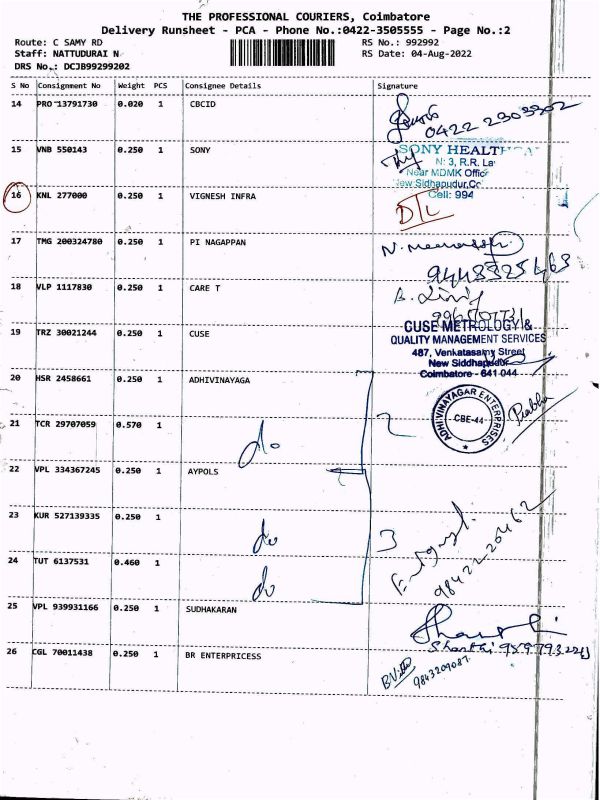 THE PROFESSIONAL COURIERS, Coimbatore
Delivery Runsheet - PCA - Phone No.:0422-3505555 - Page No.:2
Route: C SAMY RD RS No.: 992992
Staff: NATTUDURAI N RS Date: 04-Aug-2022
DRS No.: DCJB99299202
S No Consignment No Weight PCS Consignee Details Signature
14 PRO 13791730 0.020 1 CBCID
0422 2303302
15 VNB 550143 0.250 1 SONY
SONY HEALTH
N: 3, R.R. La
Near MDMK Offic
New Sidhapudur,Co
Cell: 994
16 KNL 277000 0.250 1 VIGNESH INFRA
D/L
17 TMG 200324780 0.250 1 PI NAGAPPAN
18 VLP 1117830 0.250 1 CARE T
19 TRZ 30021244 0.250 1 CUSE
CUSE METROLOGY &
QUALITY MANAGEMENT SERVICES
487, Venkatasamy Street
New Siddhapudur
Coimbatore - 641 044
20 HSR 2458661 0.250 1 ADHIVINAYAGA
ADHIVINAYAGAR ENTERPRISES
CBE-44
Prabha
21 TCR 29707059 0.570 1
do
2
22 VPL 334367245 0.250 1 AYPOLS
23 KUR 527139335 0.250 1
do
3
98422-20462
24 TUT 6137531 0.460 1
do
25 VPL 939931166 0.250 1 SUDHAKARAN
Shanthi
26 CGL 70011438 0.250 1 BR ENTERPRICESS
9843209087